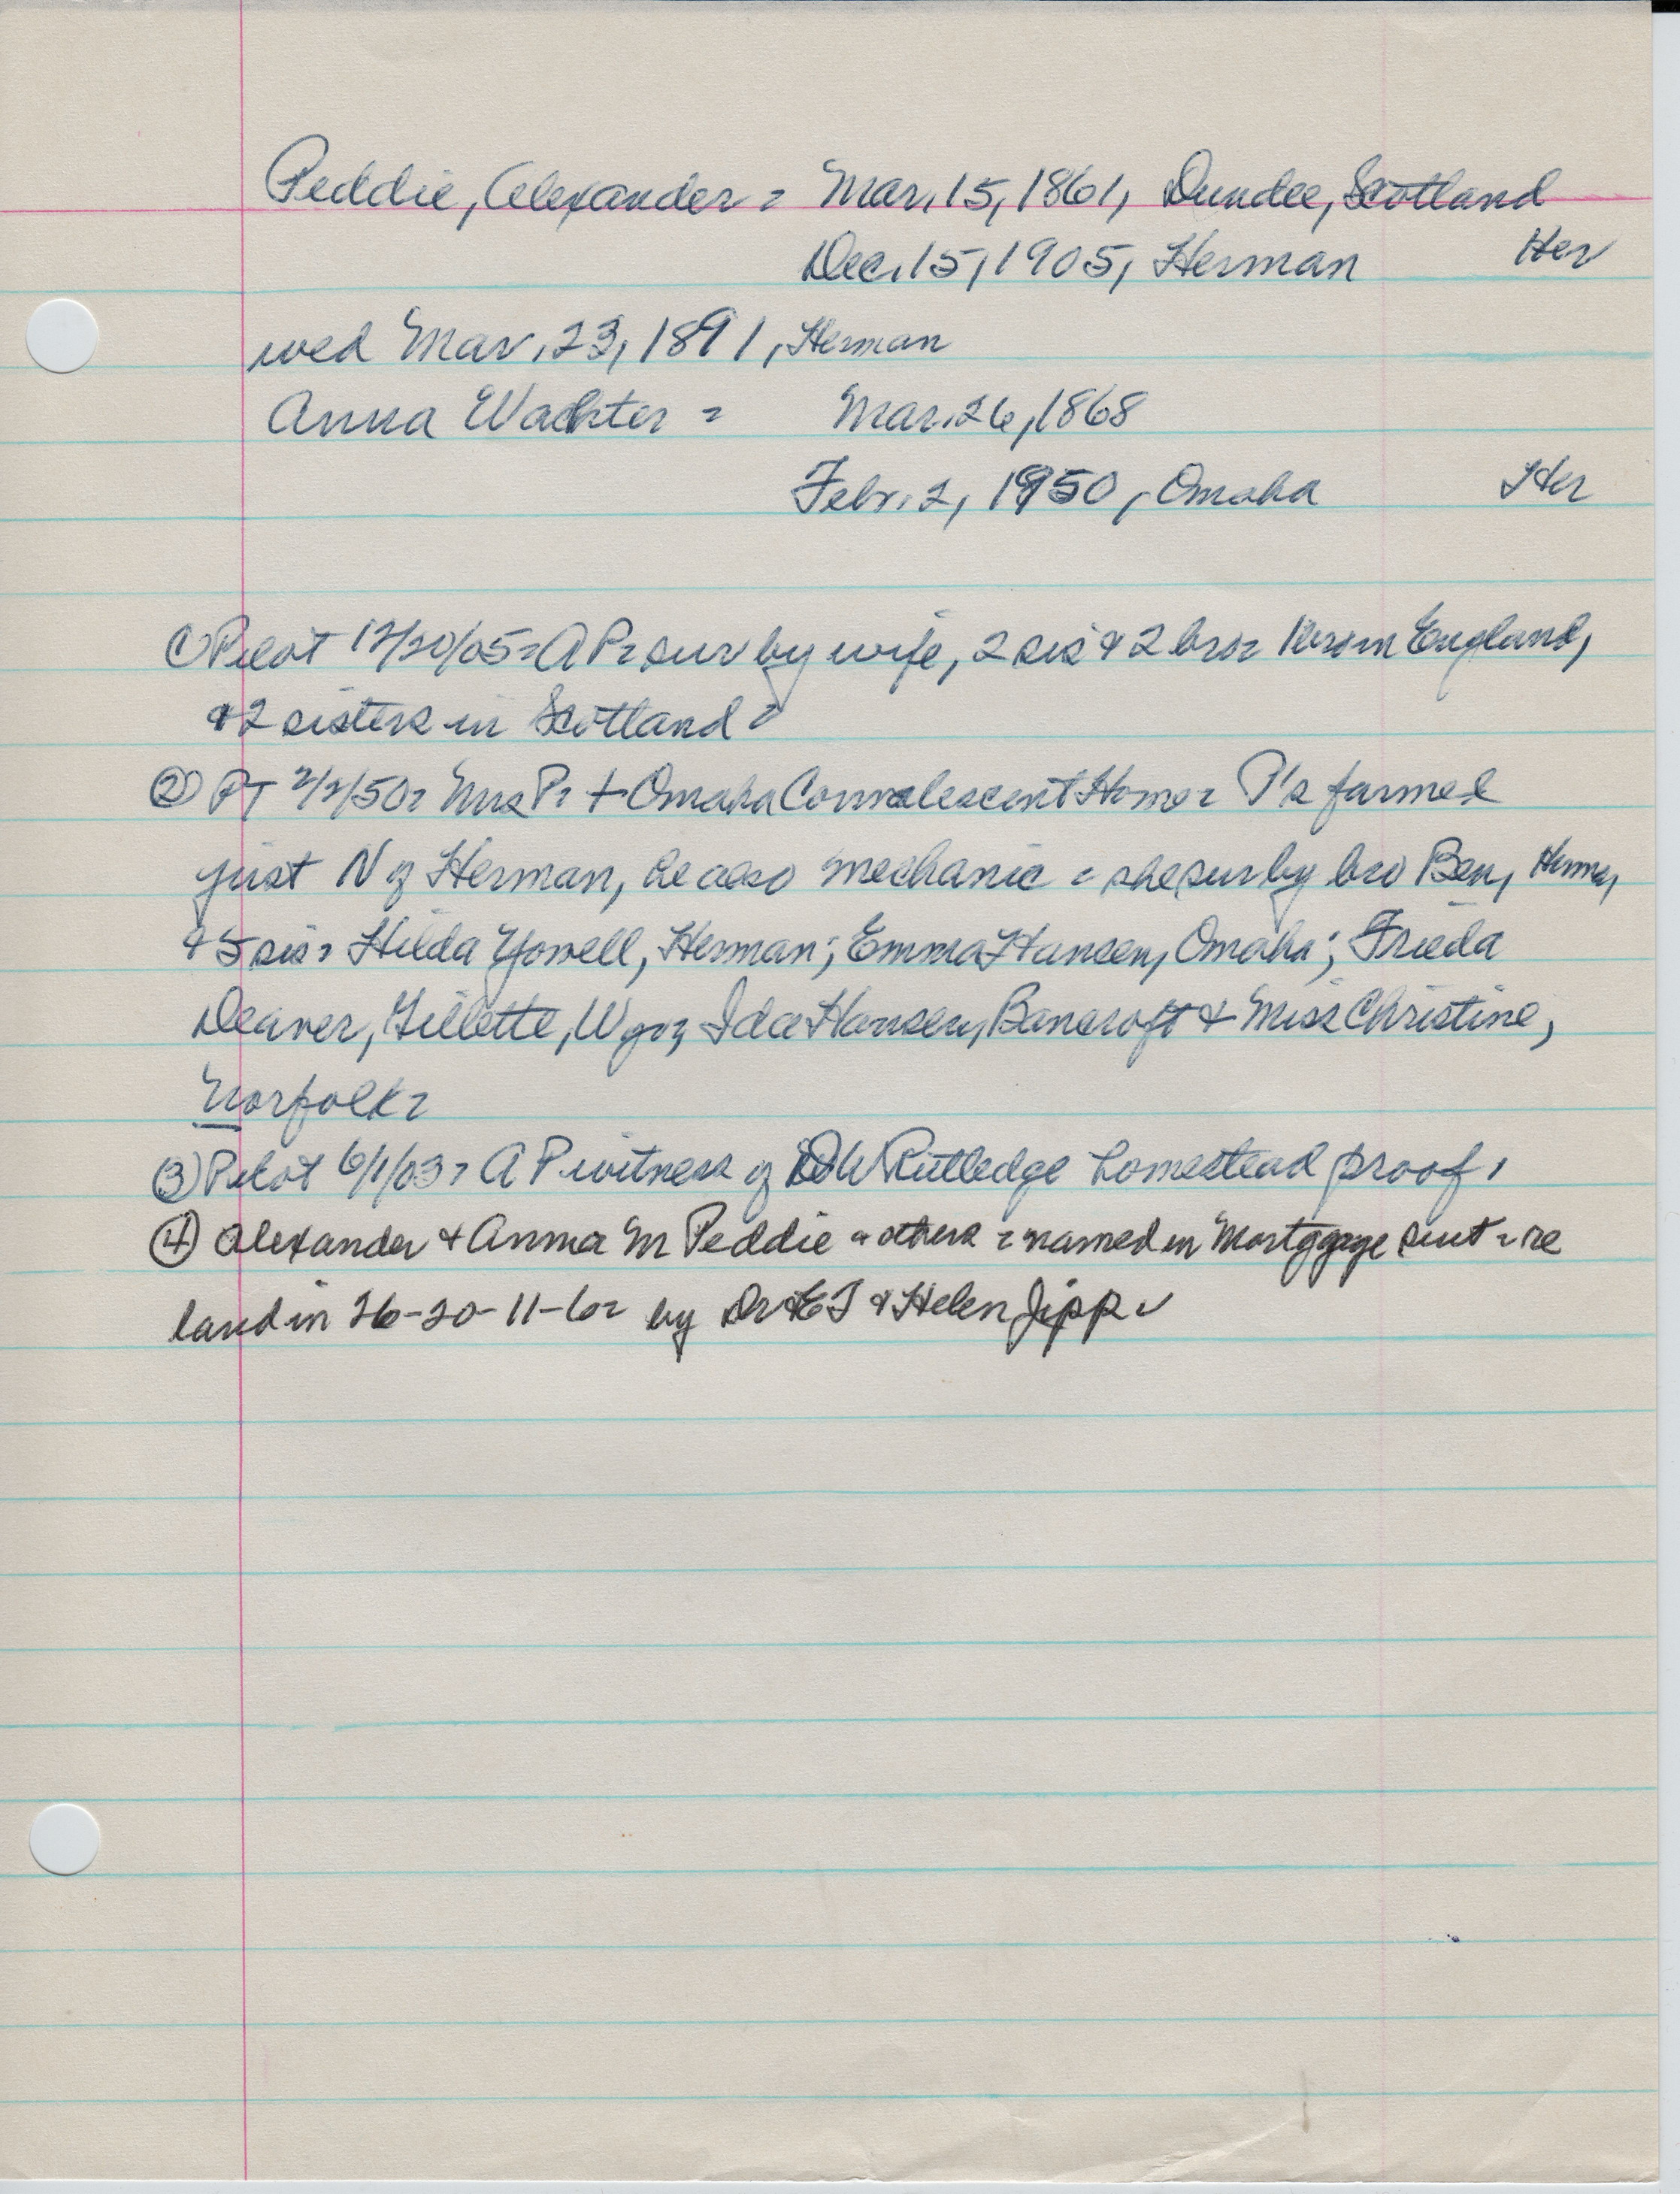 Peddie, Alexander = Mar. 15, 1861, Dundee, Scotland
Dec. 15, 1905, Herman Her
wed Mar. 23, 1891, Herman
Anna Wachter = Mar. 26, 1868
Febr. 2, 1950, Omaha Her
① Pilot 12/20/05 = A P = sur by wife, 2 sis & 2 bro = England,
& 2 sisters in Scotland =
② PT 2/2/50 = Mrs P = + Omaha Convalescent Home = P's farmed
just N of Herman, he also mechanic = she sur by bro Ben, Herman,
& 5 sis = Hilda Yowell, Herman; Emma Hansen, Omaha; Frieda
Deaver, Gillette, Wyo; Ida Hansen, Bancroft & Miss Christine,
Norfolk =
③ Pilot 6/1/03 = A P witness of DW Rutledge homestead proof,
④ Alexander & Anna M Peddie & others = named in Mortggage suit = re
land in 26-20-11-62 by Dr & Helen Jipp